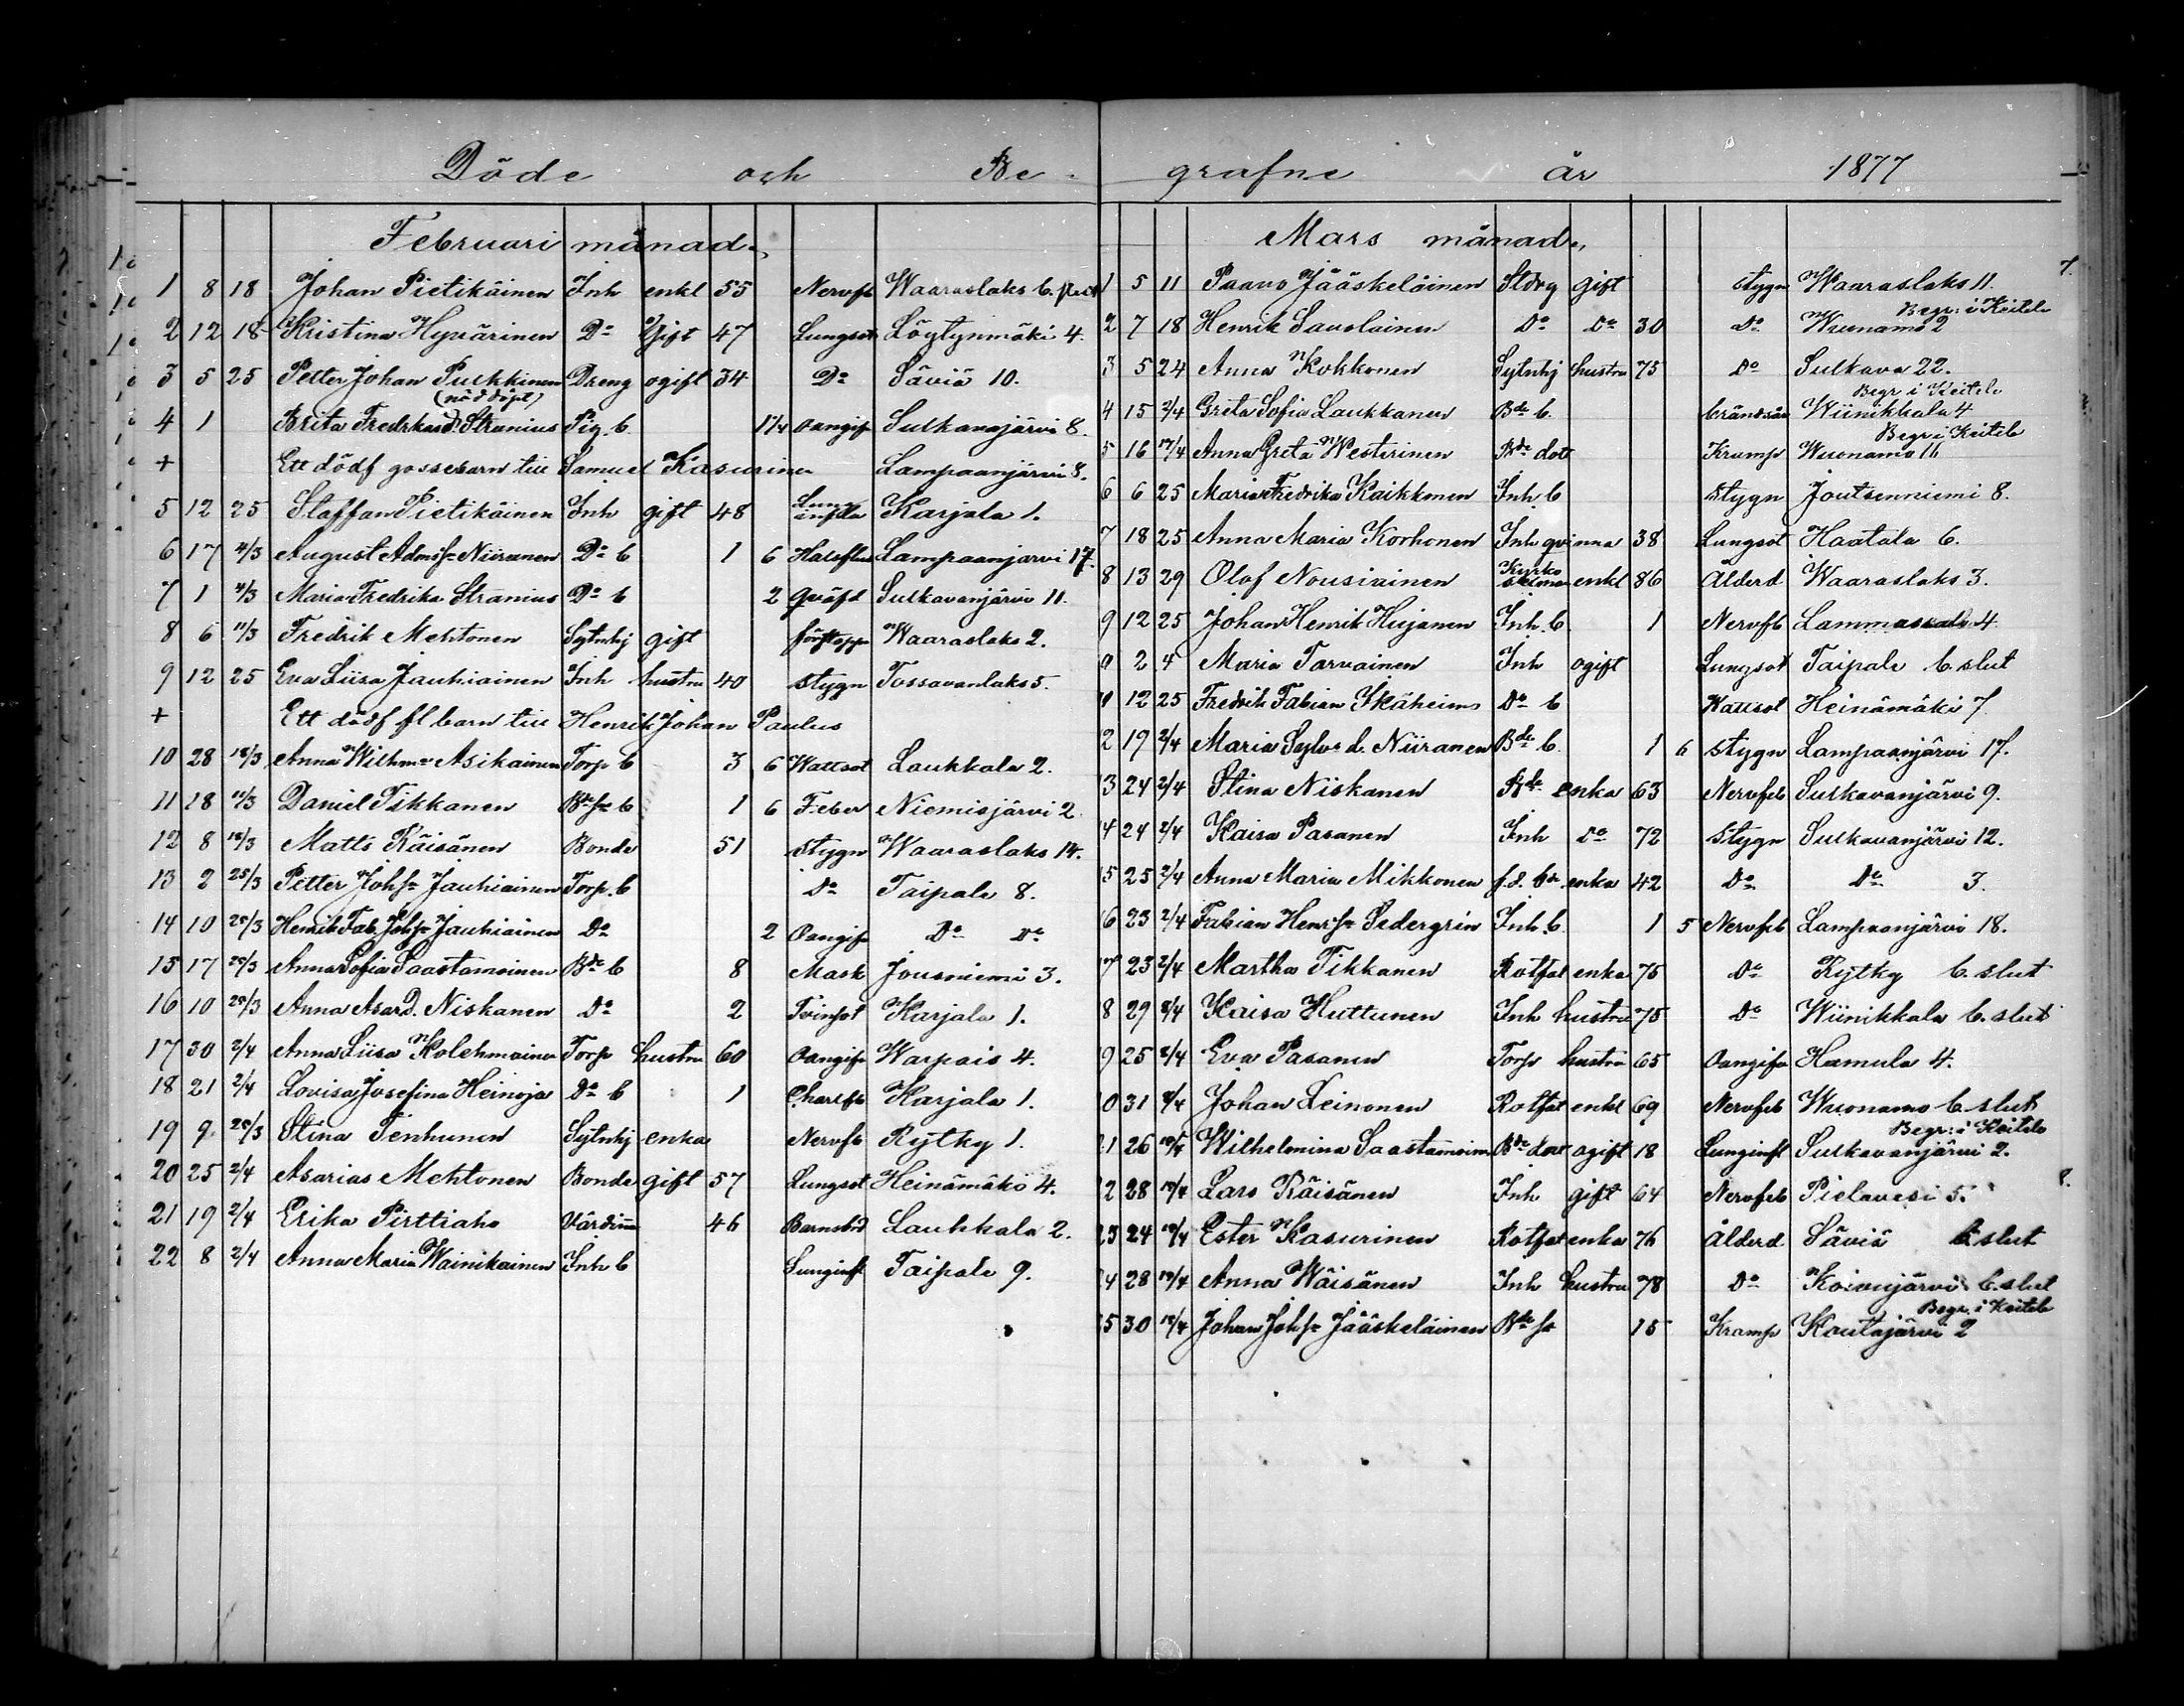 Döde och Be- grafne år 1877
Februari månad.
1 8 18 Johan Pietikäinen Inh enkl 55 Nervfb Waaraslaks b.
2 12 18 Kristina Hyvärinen Do Gift 47 Lungsot Löytynmäki 4.
3 5 25 Petter Johan Pulkkinen Dreng ogift 34 Do Säviä 10.
(nöddöpt)
4 1 Brita Fredrika d. Stranius Pig. b. 1/4 oangif Sulkavajärvi 8.
+ Ett dödf gossebarn till Samuel Kasurinen Lampaanjärvi 8.
5 12 25 Staffan Pietikäinen Inh gift 48 Lung infla Karjala 1.
6 17 4/3 August Admsn Niiranen Do b 1 6 Halsflus Lampaanjarvi 17.
7 1 4/3 Maria Fredrika Stranius Do b 2 qväfd Sulkavanjärvi 11.
8 6 11/3 Fredrik Mehtonen Sytnhj gift förstopp Waaraslaks 2.
9 12 25 Eva Liisa Jauhiainen Inh hustru 40 stygn Tossavanlaks 5.
+ Ett dödf fl barn till Henrik Johan Paulus
10 28 18/3 Anna Wilhma Asikainen Torp b 3 6 Wattsot Laukkala 2.
11 18 11/3 Daniel Tikkanen Bdesn b 1 6 Feber Niemisjärvi 2.
12 8 18/3 Matts Räisänen Bonde 51 stygn Waaraslaks 14.
13 2 25/3 Petter Johsn Jauhiainen Torp. b Do Taipale 8.
14 10 25/3 Henrik Fab. Johsn Jauhiainen Do 2 Oangif Do Do
15 17 25/3 Anna Sofia Saastamoinen Bde b 8 Mask Jousniemi 3.
16 10 25/3 Anna Asar d. Niskanen Do 2 Tvinsot Karjala 1.
17 30 2/4 Anna Liisa Kolehmainen Torp hustru 60 Oangif Warpais 4.
18 21 2/4 Lovisa Josefina Heinoja Do b 1 Charlfb Karjala 1.
19 9 25/3 Stina Tenhunen Sytnhj enka Nervfb Rytky 1.
20 25 2/4 Asarias Mehtonen Bonde gift 57 Lungsot Heinämäki 4.
21 19 2/4 Erika Pirttiaho Värdinn 46 Barnsbd Laukkala 2.
22 8 2/4 Anna Maria Wainikainen Inh b Lunginfl Taipale 9.
Mars månad.
1 5 11 Paavo Jääskeläinen Stdrg gift stygn Waaraslaks 11. 7.
Begr: i Keitele
2 7 18 Henrik Savolainen Do Do 30 Do Wuonamo 2
3 5 24 Anna Kokkonen Sytnhj hustru 75 Do Sulkava 22.
Begr i Keitele
4 15 2/4 Greta Sofia Laukkanen Bde b. brändsår Wiinikkala 4
Begr i Keitele
5 16 17/4 Anna Greta Westerinen Bde dot Kramp Wuonamo 11
6 6 25 Maria Fredrika Kaikkonen Inh. b stygn Joutsenniemi 8.
7 18 25 Anna Maria Korhonen Inh qvinna 38 Lungsot Haatala 6.
8 13 29 Olof Nousiainen Kyrko enkl 86 Ålderd Waaraslaks 3.
9 12 25 Johan Henrik Hujanen Inh. b 1 Nervfb Lammassalo 4
0 2 4 Maria Tarvainen Inh ogift Lungsot Taipale b. slut
1 12 25 Fredrik Fabian Ikäheimo Do b Wattsot Heinämäki 7
2 19 2/4 Maria Sylv. d. Niiranen Bde b. 1 6 stygn Lampaanjärvi 17.
3 24 2/4 Stina Niskanen Bde enka 63 Nervfeb Sulkavanjärvi 9.
4 24 2/4 Kaisa Pasanen Inh Do 72 Stygn Sulkavanjärvi 12.
5 25 2/4 Anna Maria Mikkonen f.d. bde enka 42 Do Do 3.
6 23 2/4 Fabian Henrsn Sedergrén Inh. b. 1 5 Nervfeb Lampaanjärvi 18.
7 23 2/4 Martha Tikkanen Rotfat enka 75 Do Rytky b. slut
8 29 8/4 Kaisa Huttunen Inh hustru 75 Do Wiinikkala b. slut
9 25 8/4 Eva Pasanen Torp hustru 65 Oangif Hamula 4.
0 31 8/4 Johan Leinonen Rotfat enkl 69 Nervfeb Wuonamo b. slut
Begr: i Keitele
21 26 10/4 Wilhelmina Saastamoinen Bde dot ogift 18 Lunginfl Sulkavanjärvi 2.
2 28 15/4 Lars Räisänen Inh gift 64 Nervfeb Pielavesi 5. 8.
23 24 15/4 Ester Kasurinen Rotfat enka 76 Ålderd Säviä b slut
24 28 15/4 Anna Wäisänen Inh hustru 78 Do Koivujärvi b. slut
Begr. i Keitele
25 30 15/4 Johan Johsn Jääskeläinen Bde sn 15 Kramp Koutajärvi 2